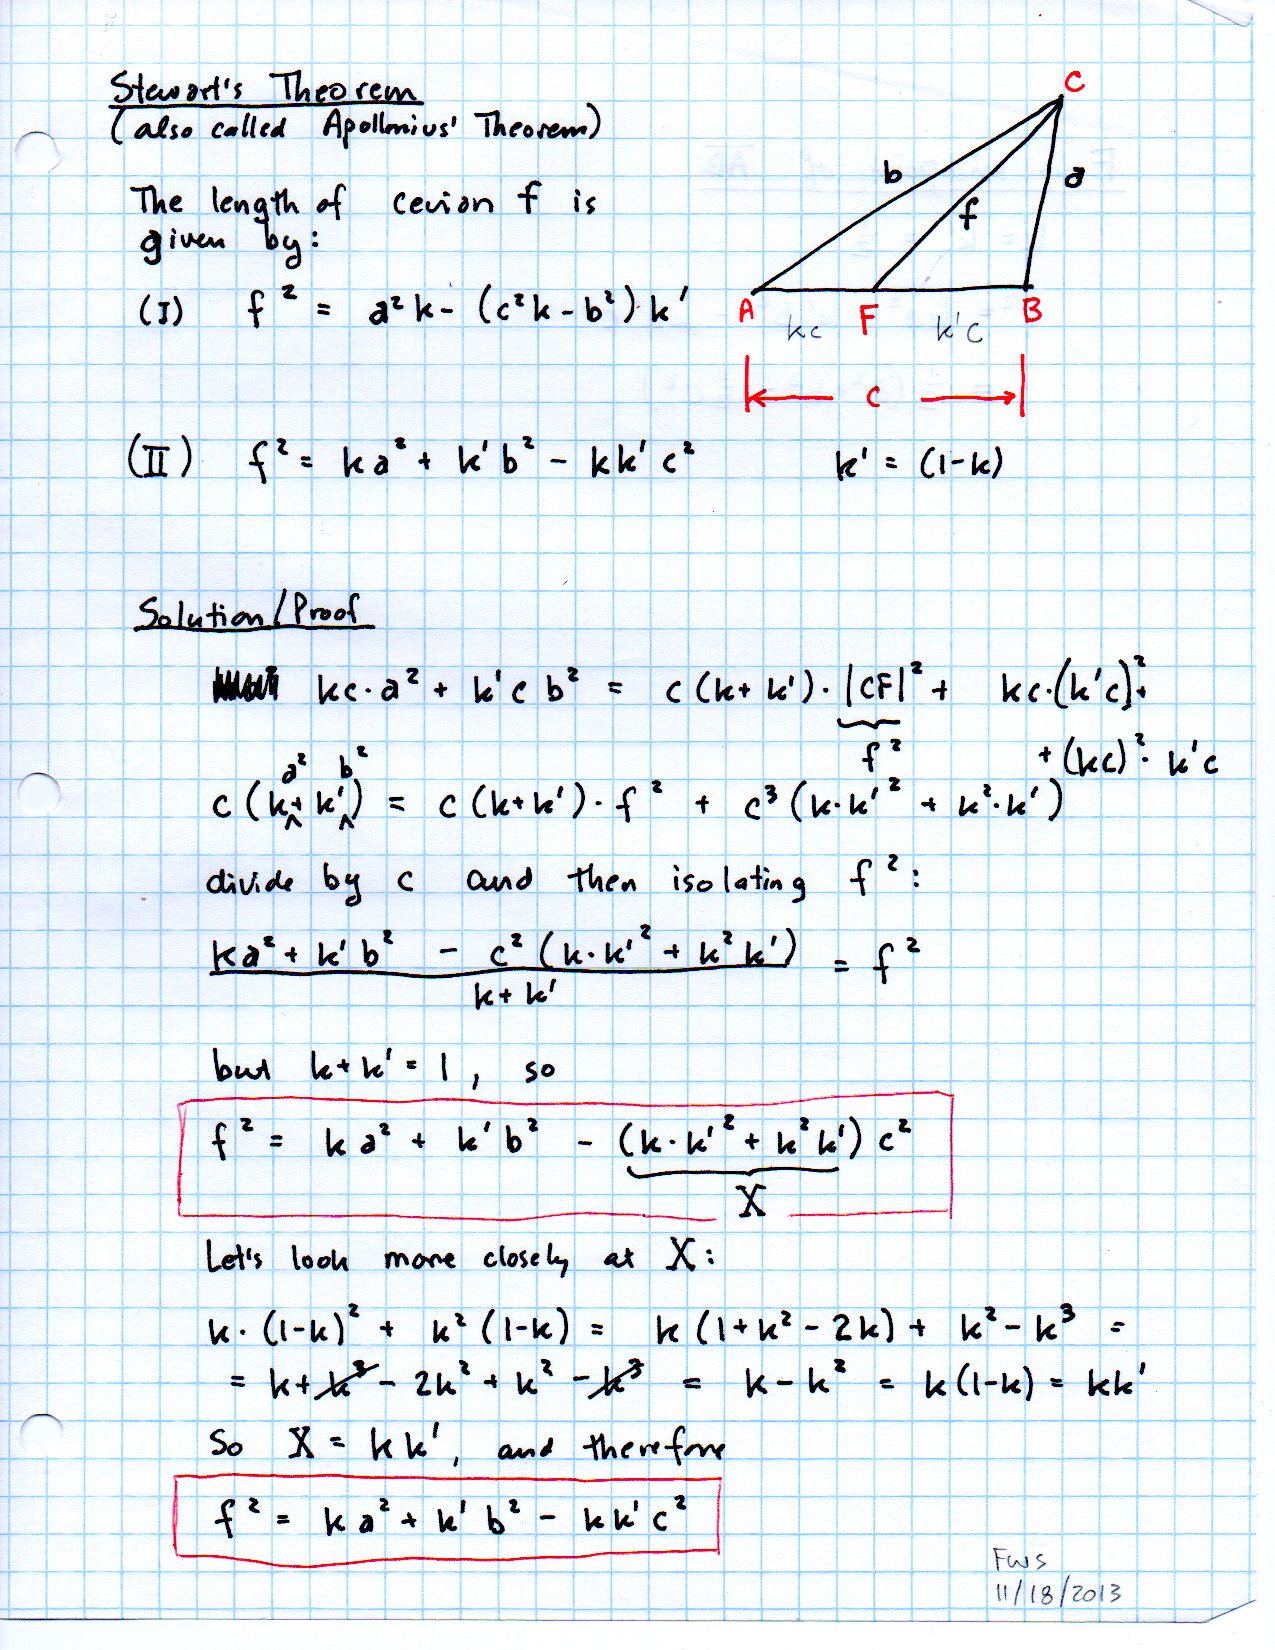 Stewart's Theorem
(also called Apollonius' Theorem)
The length of cevian f is
given by:
(I) f² = a²k - (c²k - b²) k'
C
b
a
f
A
F
B
kc
k'c
c
(II) f² = ka² + k'b² - kk'c² k' = (1-k)
Solution/Proof
kc·a² + k'c b² = c(k+k')·|CF|² + kc·(k'c)² +
f² + (kc)²·k'c
a² b²
c(k + k') = c(k+k')·f² + c³(k·k'² + k²·k')
divide by c and then isolating f²:
ka² + k'b² - c²(k·k'² + k²k') = f²
k + k'
but k+k' = 1, so
f² = ka² + k'b² - (k·k'² + k²k')c²
X
Let's look more closely at X:
k·(1-k)² + k²(1-k) = k(1+k²-2k) + k² - k³ =
= k + k³ - 2k² + k² - k³ = k - k² = k(1-k) = kk'
So X = kk', and therefore
f² = ka² + k'b² - kk'c²
FWS
11/18/2013